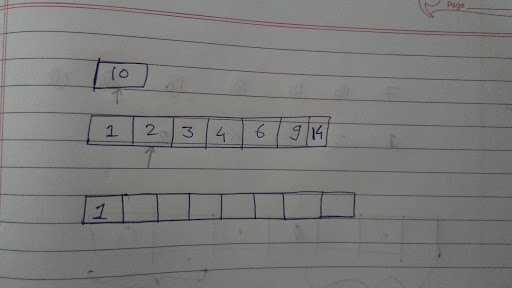 Page
10
1 2 3 4 6 9 14
1